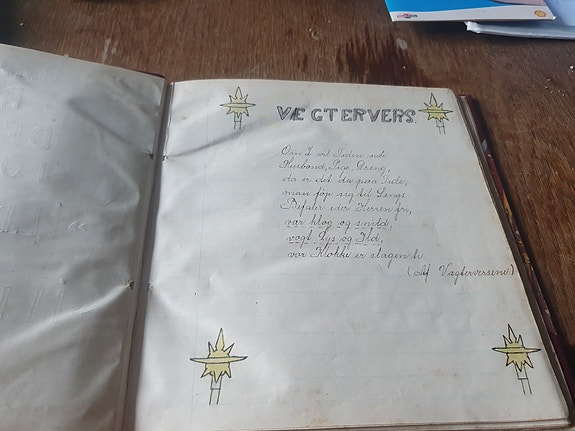 VÆGTERVERS.
Om I vil Tiden vide
Husbond, Pige, Dreng,
da er det da paa Tide,
man föje sig til Sengs.
Befaler eder Herren fri,
var klog og snild,
vogt Lys og Ild,
vor Klokke er slagen ti
(Af Vægterversene)